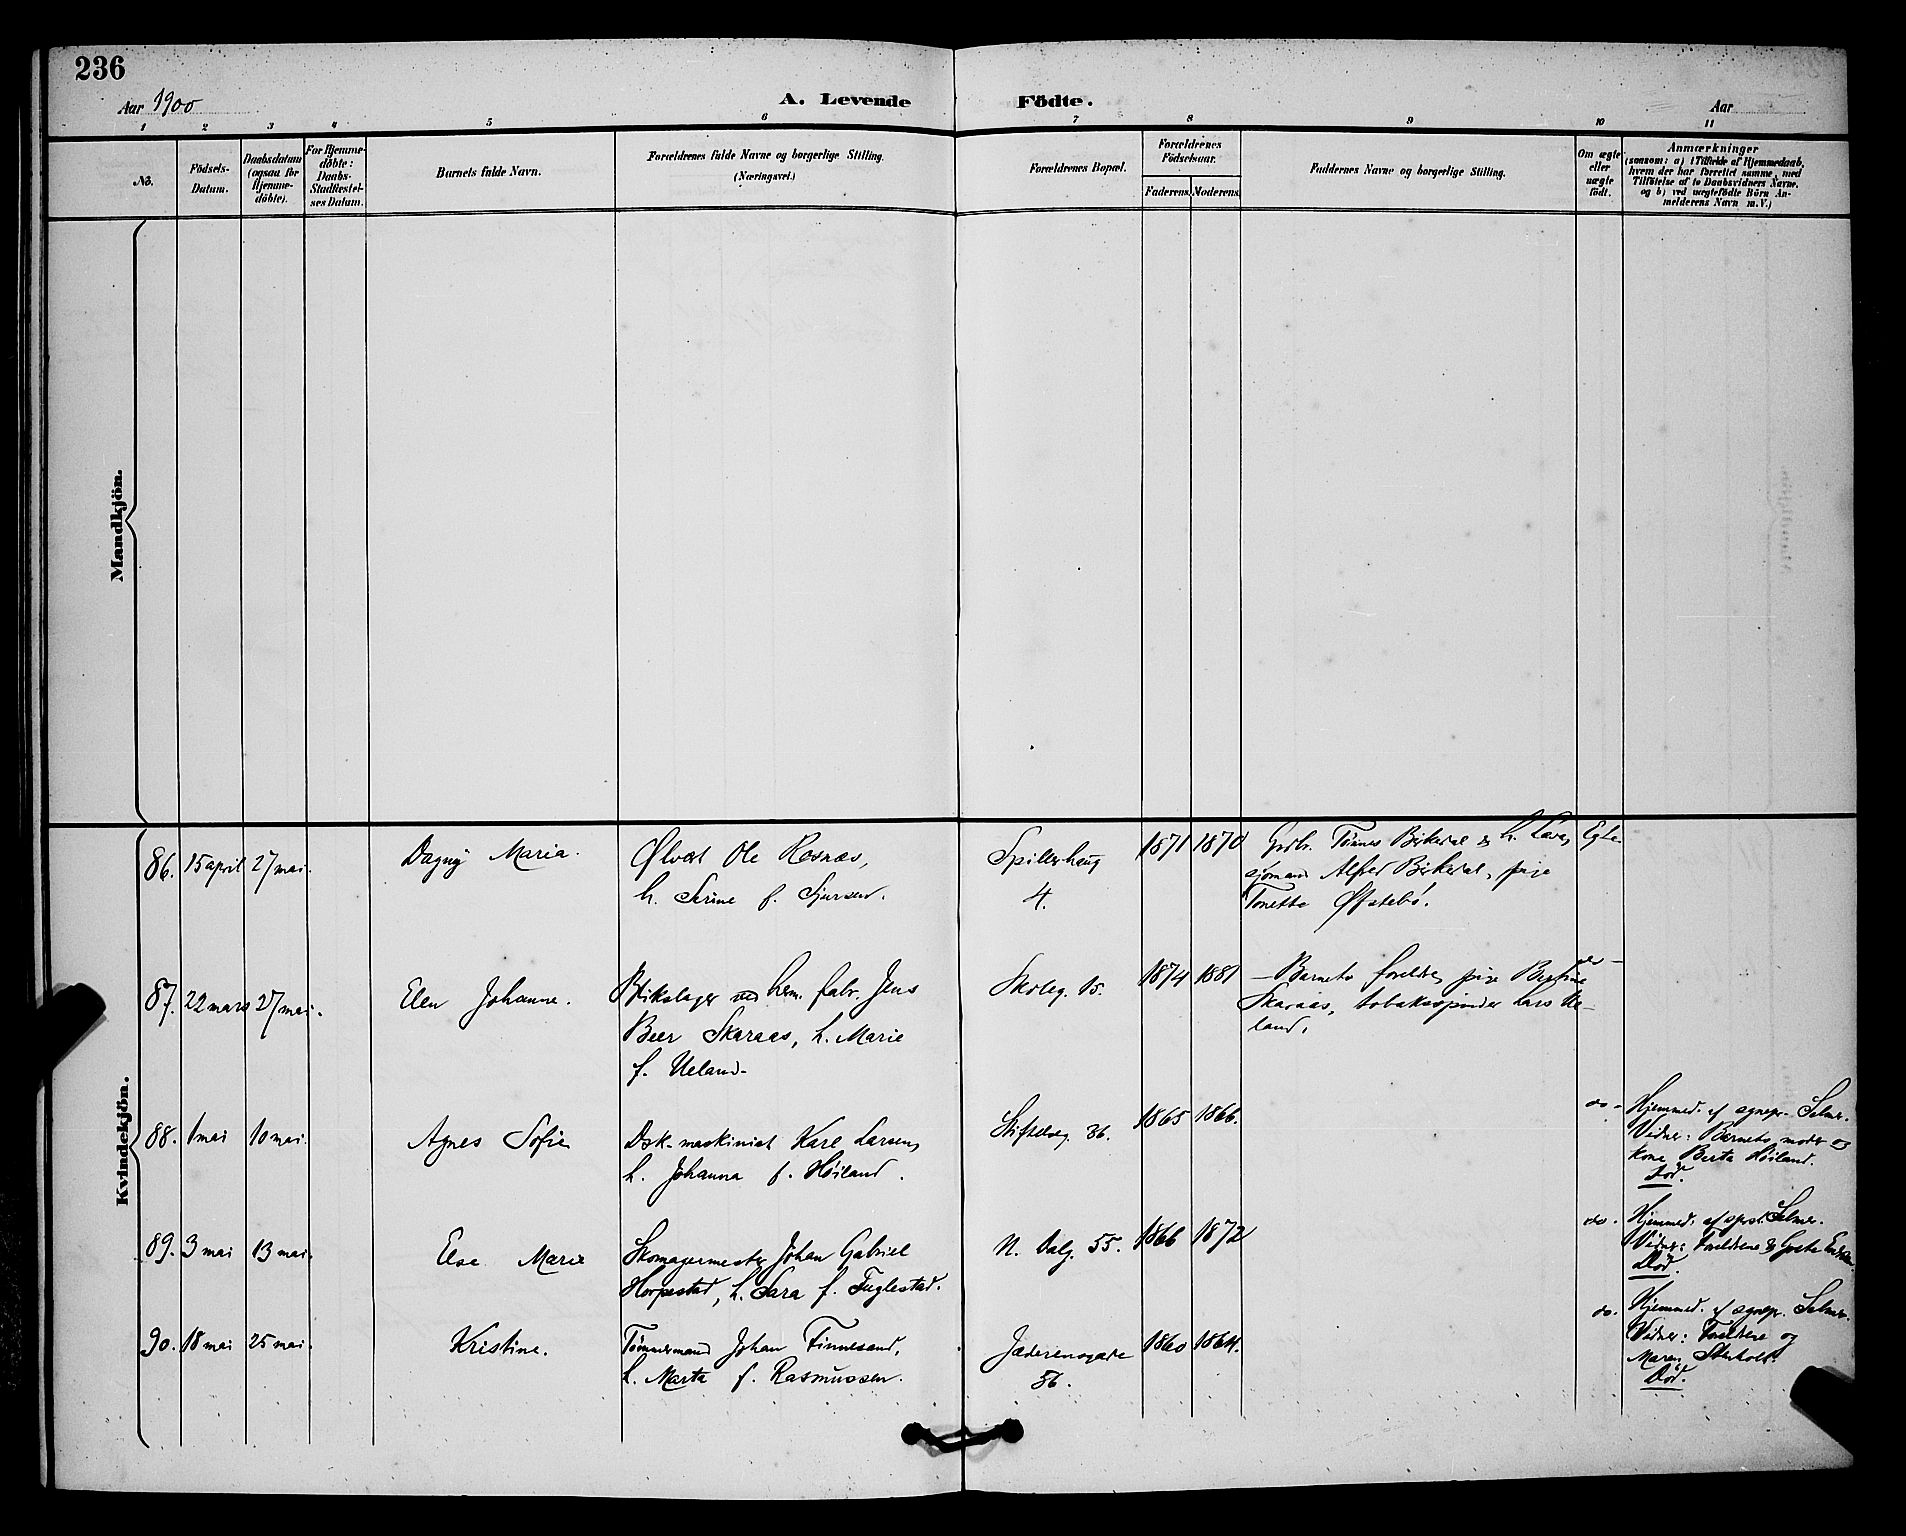 236
Aar 1900
A. Levende Födte.
Aar
1 2 3 4 5 6 7 8 9 10 11
No.
Födsels-
Datum.
Daabsdatum
(ogsaa for
Hjemme-
döbte).
For Hjemme-
döbte:
Daabs-
Stadfæstel-
ses Datum.
Barnets fulde Navn.
Forældrenes fulde Navne og borgerlige Stilling.
(Næringsvei.)
Forældrenes Bopæl.
Forældrenes
Födselsaar.
Faderens. Moderens.
Faddernes Navne og borgerlige Stilling.
Om ægte
eller
uægte
födt.
Anmærkninger
(saasom: a) i Tilfælde af Hjemmedaab,
hvem der har forrettet samme, med
Tilföielse af to Daabsvidners Navne,
og b) ved uægtefödte Börn An-
melderens Navn m. V.)
Mandkjön.
Kvindekjön.
86. 15 april 27 mai.
Dagny Maria.
Ole Rosnæs,
h. Serine f. Sjursen.
Spillerhaug
4.
1871 1870
Tønnes Birkedal & h. Lava,
sjømand Alfred Birkedal, pige
Tonette Øfstebø.
Egte
87. 22 mars 27 mai.
Elen Johanne.
Blikslager ved herm. fabr. Jens
Beer Skaraas, h. Marie
f. Ueland.
Skoleg. 15.
1874 1881
– Barnets foreldre, pige
Skaraas, tobaksspinder Lars Ue-
land.
do –
88. 1 mai 10 mai.
Agnes Sofie
Dsk. maskinist Karl Larsen,
h. Johanna f. Höiland.
Stiftelseg. 36.
1865 1866.
do –
Hjemmed. af sognepr. Selmer.
Vidner: Barnets moder og
kone Berta Höiland.
Död.
89. 3 mai 13 mai.
Else Marie
Skomagermester Johan Gabriel
Horpestad, h. Sara f. Fuglestad.
N. Dalg. 55.
1866 1872
do.
Hjemmed. af sgpr. Selmer.
Vidner: Foreldrene &
Död.
90. 18 mai 25 mai.
Kristine.
Tømmermand Johan Finnesand,
h. Marta f. Rasmussen.
Jæderensgade
56.
1860 1864.
do.
Hjemmed. af sognepr. Selmer.
Vidner: Foreldrene og
Maren
Död.